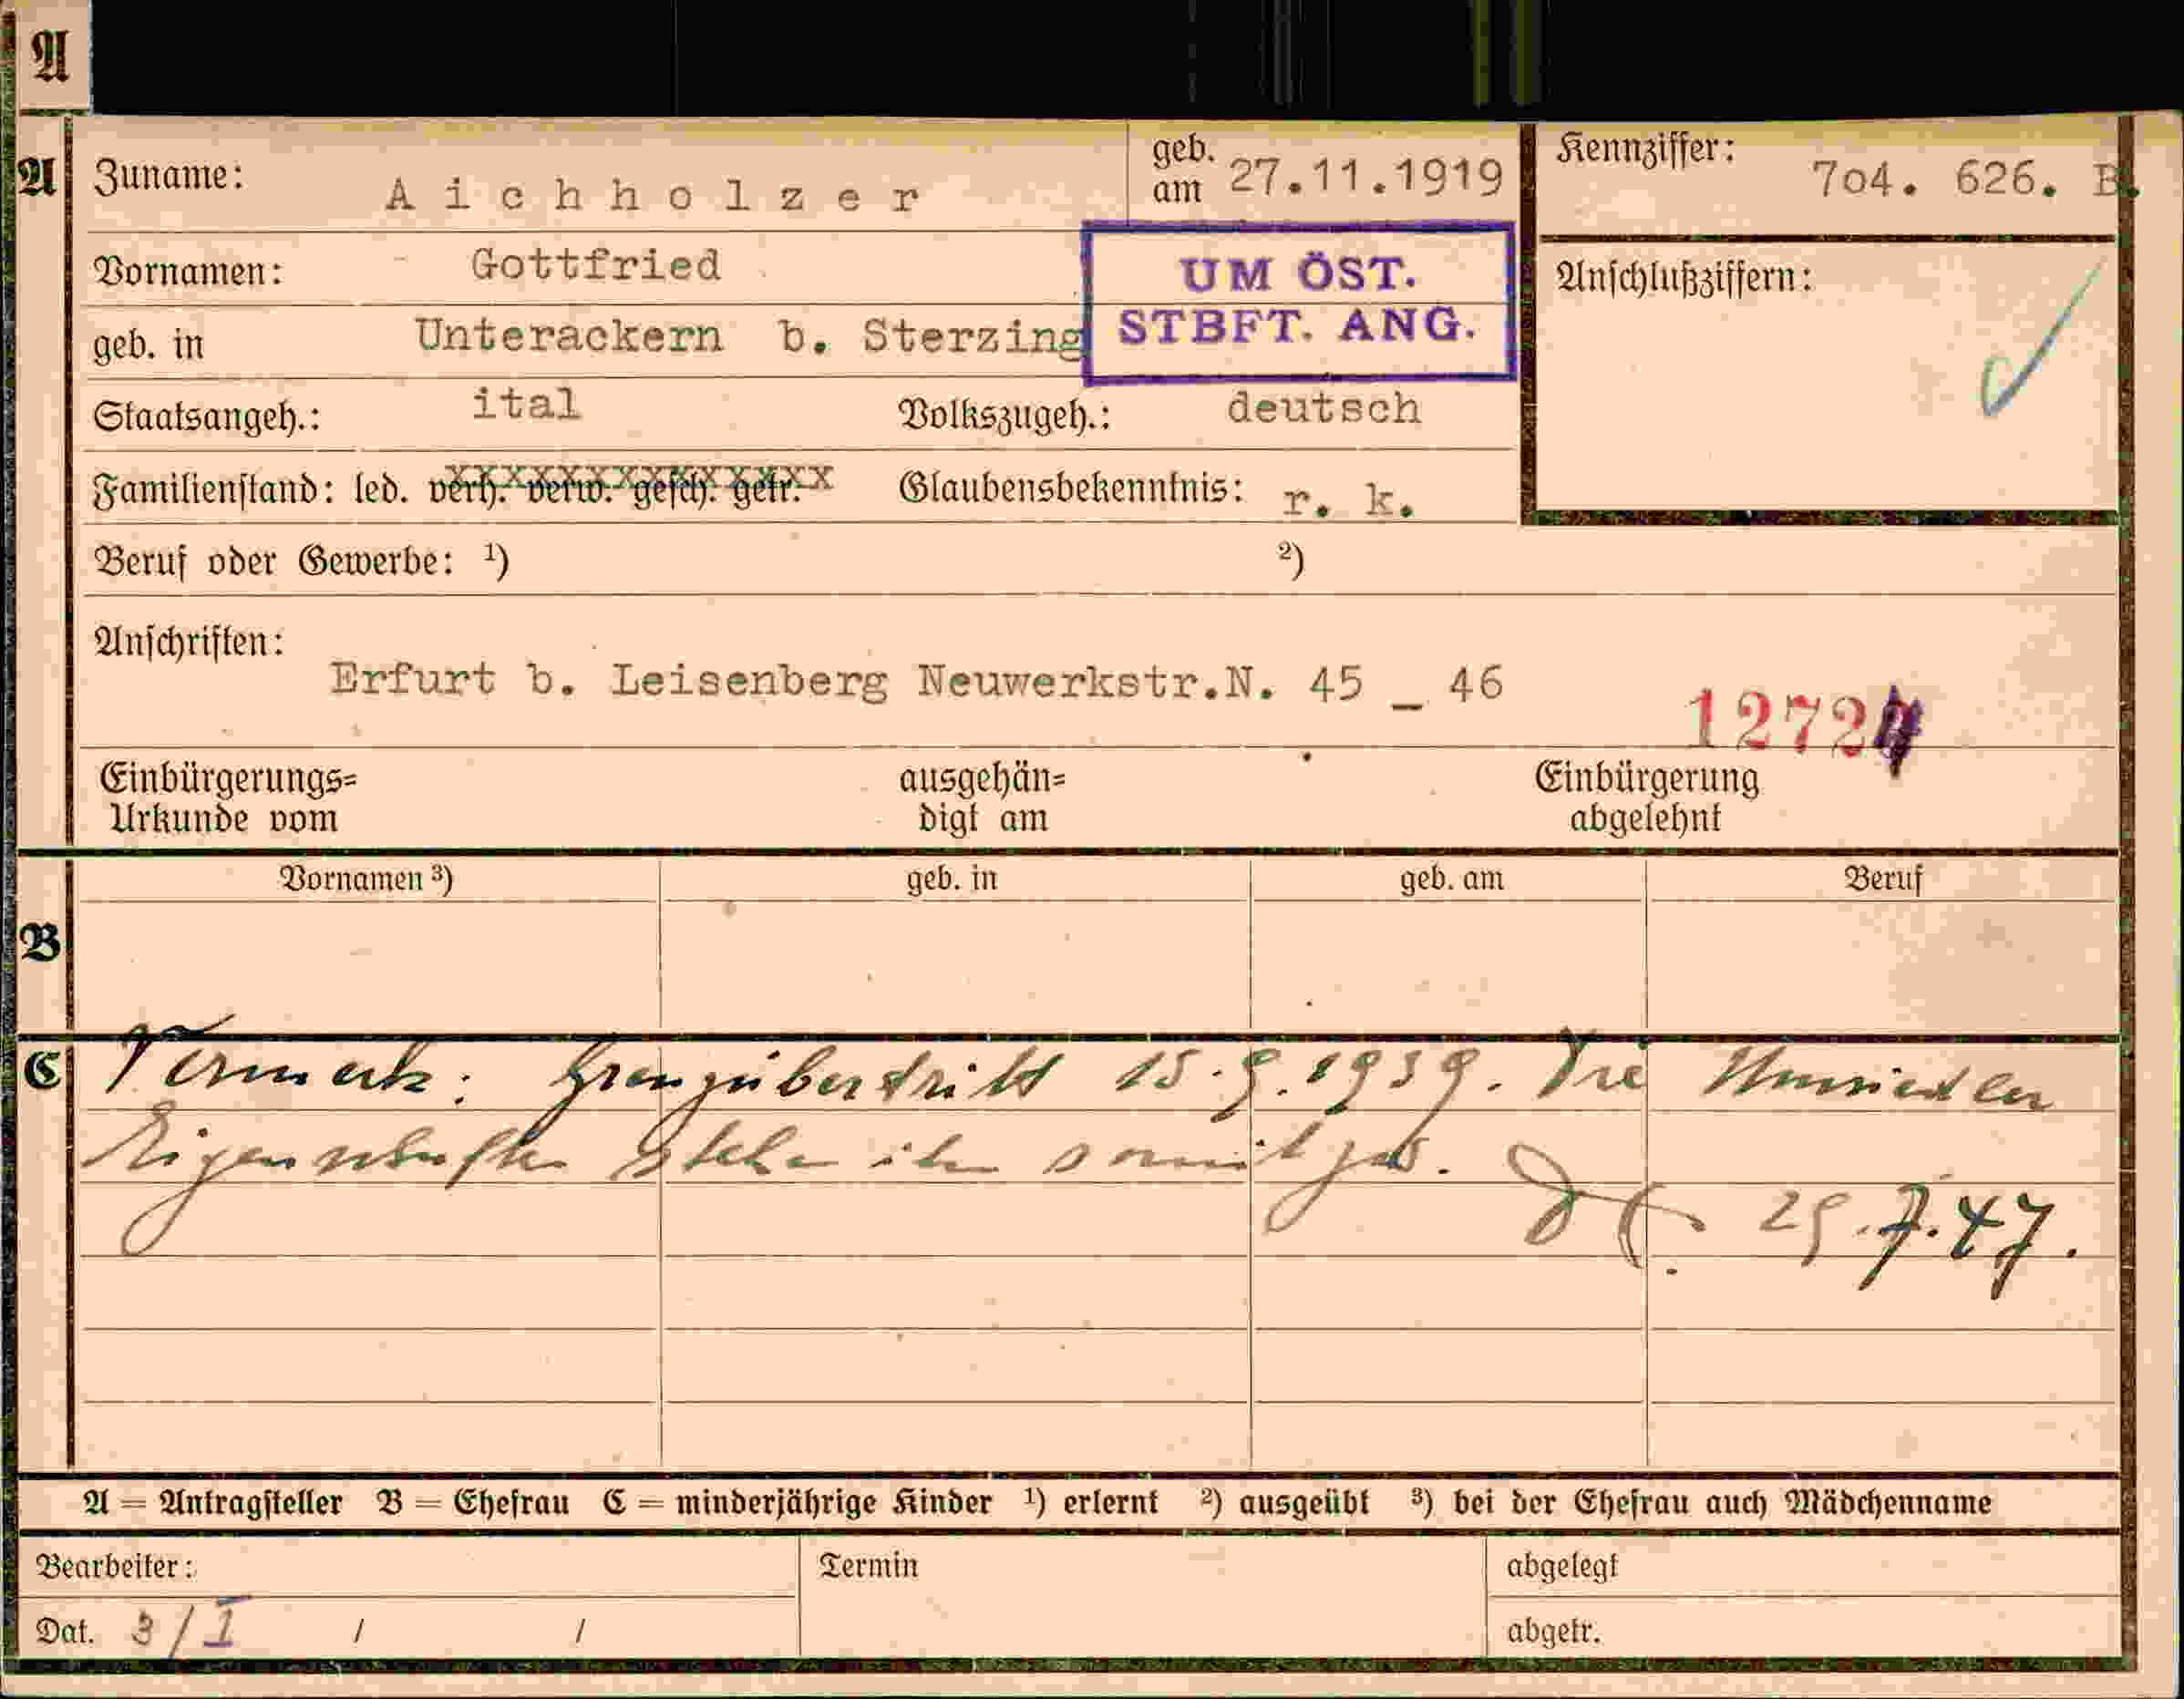 A
A
Zuname: Aichholzer
geb. am 27.11.1919
Kennziffer: 704. 626. B.
Vornamen: Gottfried
UM ÖST.
STBFT. ANG.
Anschlußziffern:
geb. in Unterackern b. Sterzing
Staatsangeh.: ital Volkszugeh.: deutsch
Familienstand: led. verh. verw. gesch. getr. Glaubensbekenntnis: r. k.
Beruf oder Gewerbe: ¹) ²)
Anschriften:
Erfurt b. Leisenberg Neuwerkstr.N. 45 _ 46
1272
Einbürgerungs= ausgehän= Einbürgerung
Urkunde vom digt am abgelehnt
B
Vornamen ³) geb. in geb. am Beruf
C
Vermerk: Grenzübertritt 15.9.1939. Die Umsiedler
Eigenschaften ihm somit
29.7.47.
A = Antragsteller B = Ehefrau C = minderjährige Kinder ¹) erlernt ²) ausgeübt ³) bei der Ehefrau auch Mädchenname
Bearbeiter: Termin abgelegt
Dat. 3/I / / abgetr.